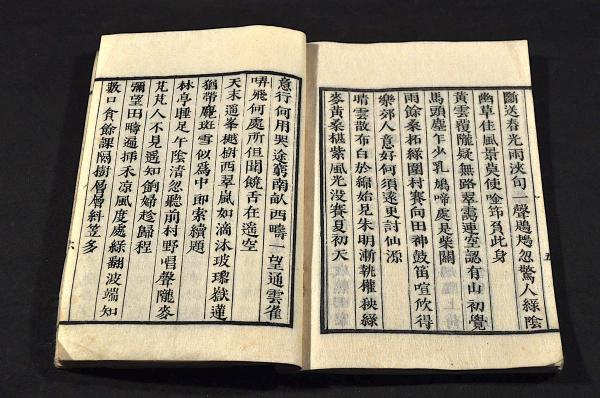 斷送春光雨浹旬一聲鶗鴂忽驚人綠陰
幽草佳風景莫使唫笻負此身
黃雲覆隴疑無路翠靄連室認有山初覺
馬頭塵乍少乳鳩啼處是柴關
雨餘桑柘綠圍村賽向田神鼓笛喧欣得
樂郊人意好何須遠更討仙源
晴雲散布白於綿始見朱明漸執權秧綠
麥黃桑椹紫風光沒賽夏初天
五
意行何用哭途窮南畝西疇一望通雲雀
哢飛何處所但聞饒舌在遥空
天末遥峯樾樹西翠嵐如滴沐玻瓈嶽蓮
猶帶麑斑雪似爲中郎索續題
林亭睡足午陰清忽聽前村野唱聲隴麥
芃芃人不見遥知餉婦趁歸程
彌望田疇遍揷禾凉風度處綠翻波端知
數口食餘課隔樹層層笠多
六